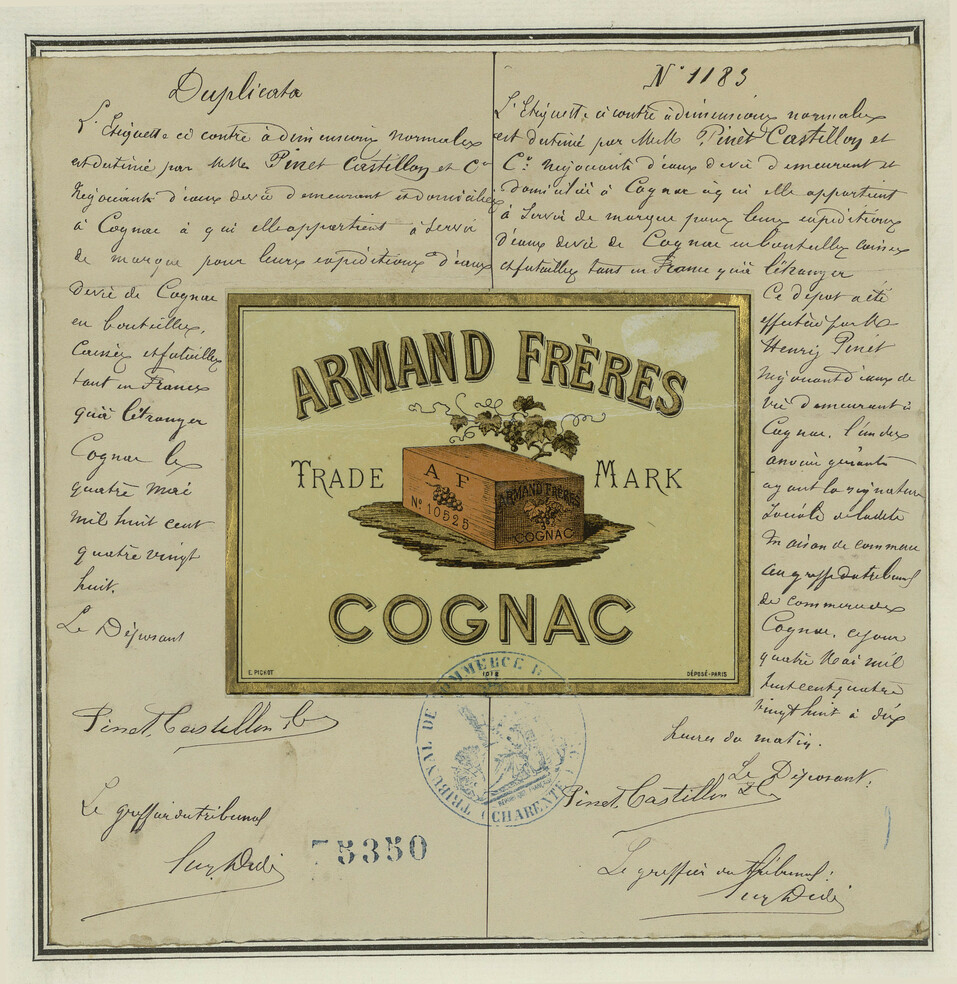 Duplicata
L'Etiquette ci contre à dimensions normales
est destiné par M.M. Pinet Castillon et Cie
Négociants d'eaux de vie demeurant et domiciliés
à Cognac à qui elle appartient à servir
de marque pour leurs expéditions d'eaux
de vie de Cognac
en bouteilles,
Caisses et futailles
tant en France
qu'à l'étranger
Cognac le
quatre Mai
mil huit cent
quatre vingt
huit.
Le Déposant
Pinet, Castillon &
Le greffier du tribunal
N° 1183
L'Etiquette ci contre à dimensions normales
est destiné par M.M. Pinet Castillon et
Cie Négociants d'eaux de vie demeurant et
domiciliés à Cognac à qui elle appartient
à servir de marque pour leurs expéditions
d'eaux de vie de Cognac en bouteilles caisses
et futailles tant en France qu'à l'étranger
Ce dépot a été
effectué par M
Henry Pinet
Négociant d'eaux de
vie demeurant à
Cognac, l'un des
gérants
ayant la signature
sociale de ladite
Maison de commerce
au greffe du tribunal
de commerce de
Cognac, ce jour
quatre Mai mil
huit cent quatre
vingt huit à dix
heures du matin.
Le Déposant:
Pinet, Castillon &
Le greffier du tribunal:
ARMAND FRÈRES
TRADE MARK
A F
N° 10525
ARMAND FRÈRES
COGNAC
COGNAC
E. PICHOT
1018
DÉPOSÉ-PARIS
TRIBUNAL DE COMMERCE D
CHARENTE
75350